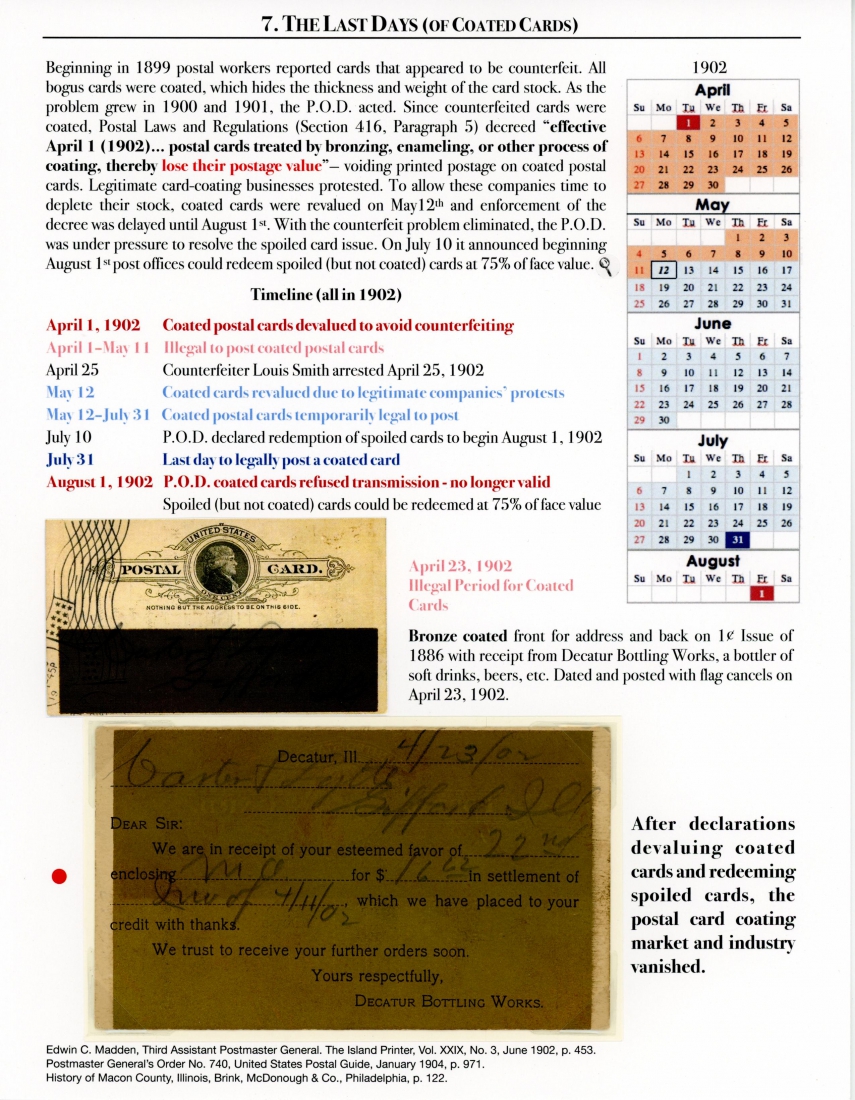 7. THE LAST DAYS (OF COATED CARDS)
Beginning in 1899 postal workers reported cards that appeared to be counterfeit. All
bogus cards were coated, which hides the thickness and weight of the card stock. As the
problem grew in 1900 and 1901, the P.O.D. acted. Since counterfeited cards were
coated, Postal Laws and Regulations (Section 416, Paragraph 5) decreed “effective
April 1 (1902)... postal cards treated by bronzing, enameling, or other process of
coating, thereby lose their postage value”– voiding printed postage on coated postal
cards. Legitimate card-coating businesses protested. To allow these companies time to
deplete their stock, coated cards were revalued on May12th and enforcement of the
decree was delayed until August 1st. With the counterfeit problem eliminated, the P.O.D.
was under pressure to resolve the spoiled card issue. On July 10 it announced beginning
August 1st post offices could redeem spoiled (but not coated) cards at 75% of face value.
Timeline (all in 1902)
April 1, 1902 Coated postal cards devalued to avoid counterfeiting
April 1–May 11 Illegal to post coated postal cards
April 25 Counterfeiter Louis Smith arrested April 25, 1902
May 12 Coated cards revalued due to legitimate companies’ protests
May 12–July 31 Coated postal cards temporarily legal to post
July 10 P.O.D. declared redemption of spoiled cards to begin August 1, 1902
July 31 Last day to legally post a coated card
August 1, 1902 P.O.D. coated cards refused transmission - no longer valid
Spoiled (but not coated) cards could be redeemed at 75% of face value
1902
April
Su Mo Tu We Th Fr Sa
1 2 3 4 5
6 7 8 9 10 11 12
13 14 15 16 17 18 19
20 21 22 23 24 25 26
27 28 29 30
May
Su Mo Tu We Th Fr Sa
1 2 3
4 5 6 7 8 9 10
11 12 13 14 15 16 17
18 19 20 21 22 23 24
25 26 27 28 29 30 31
June
Su Mo Tu We Th Fr Sa
1 2 3 4 5 6 7
8 9 10 11 12 13 14
15 16 17 18 19 20 21
22 23 24 25 26 27 28
29 30
July
Su Mo Tu We Th Fr Sa
1 2 3 4 5
6 7 8 9 10 11 12
13 14 15 16 17 18 19
20 21 22 23 24 25 26
27 28 29 30 31
August
Su Mo Tu We Th Fr Sa
1
UNITED STATES
POSTAL CARD.
ONE CENT
NOTHING BUT THE ADDRESS TO BE ON THIS SIDE.
April 23, 1902
Illegal Period for Coated
Cards
Bronze coated front for address and back on 1¢ Issue of
1886 with receipt from Decatur Bottling Works, a bottler of
soft drinks, beers, etc. Dated and posted with flag cancels on
April 23, 1902.
Decatur, Ill. 4/23/02
Carter &
Ill
DEAR SIR:
We are in receipt of your esteemed favor of 22nd
enclosing M O for $ in settlement of
Inv of 4/11/02, which we have placed to your
credit with thanks.
We trust to receive your further orders soon.
Yours respectfully,
DECATUR BOTTLING WORKS.
After declarations
devaluing coated
cards and redeeming
spoiled cards, the
postal card coating
market and industry
vanished.
Edwin C. Madden, Third Assistant Postmaster General. The Island Printer, Vol. XXIX, No. 3, June 1902, p. 453.
Postmaster General's Order No. 740, United States Postal Guide, January 1904, p. 971.
History of Macon County, Illinois, Brink, McDonough & Co., Philadelphia, p. 122.